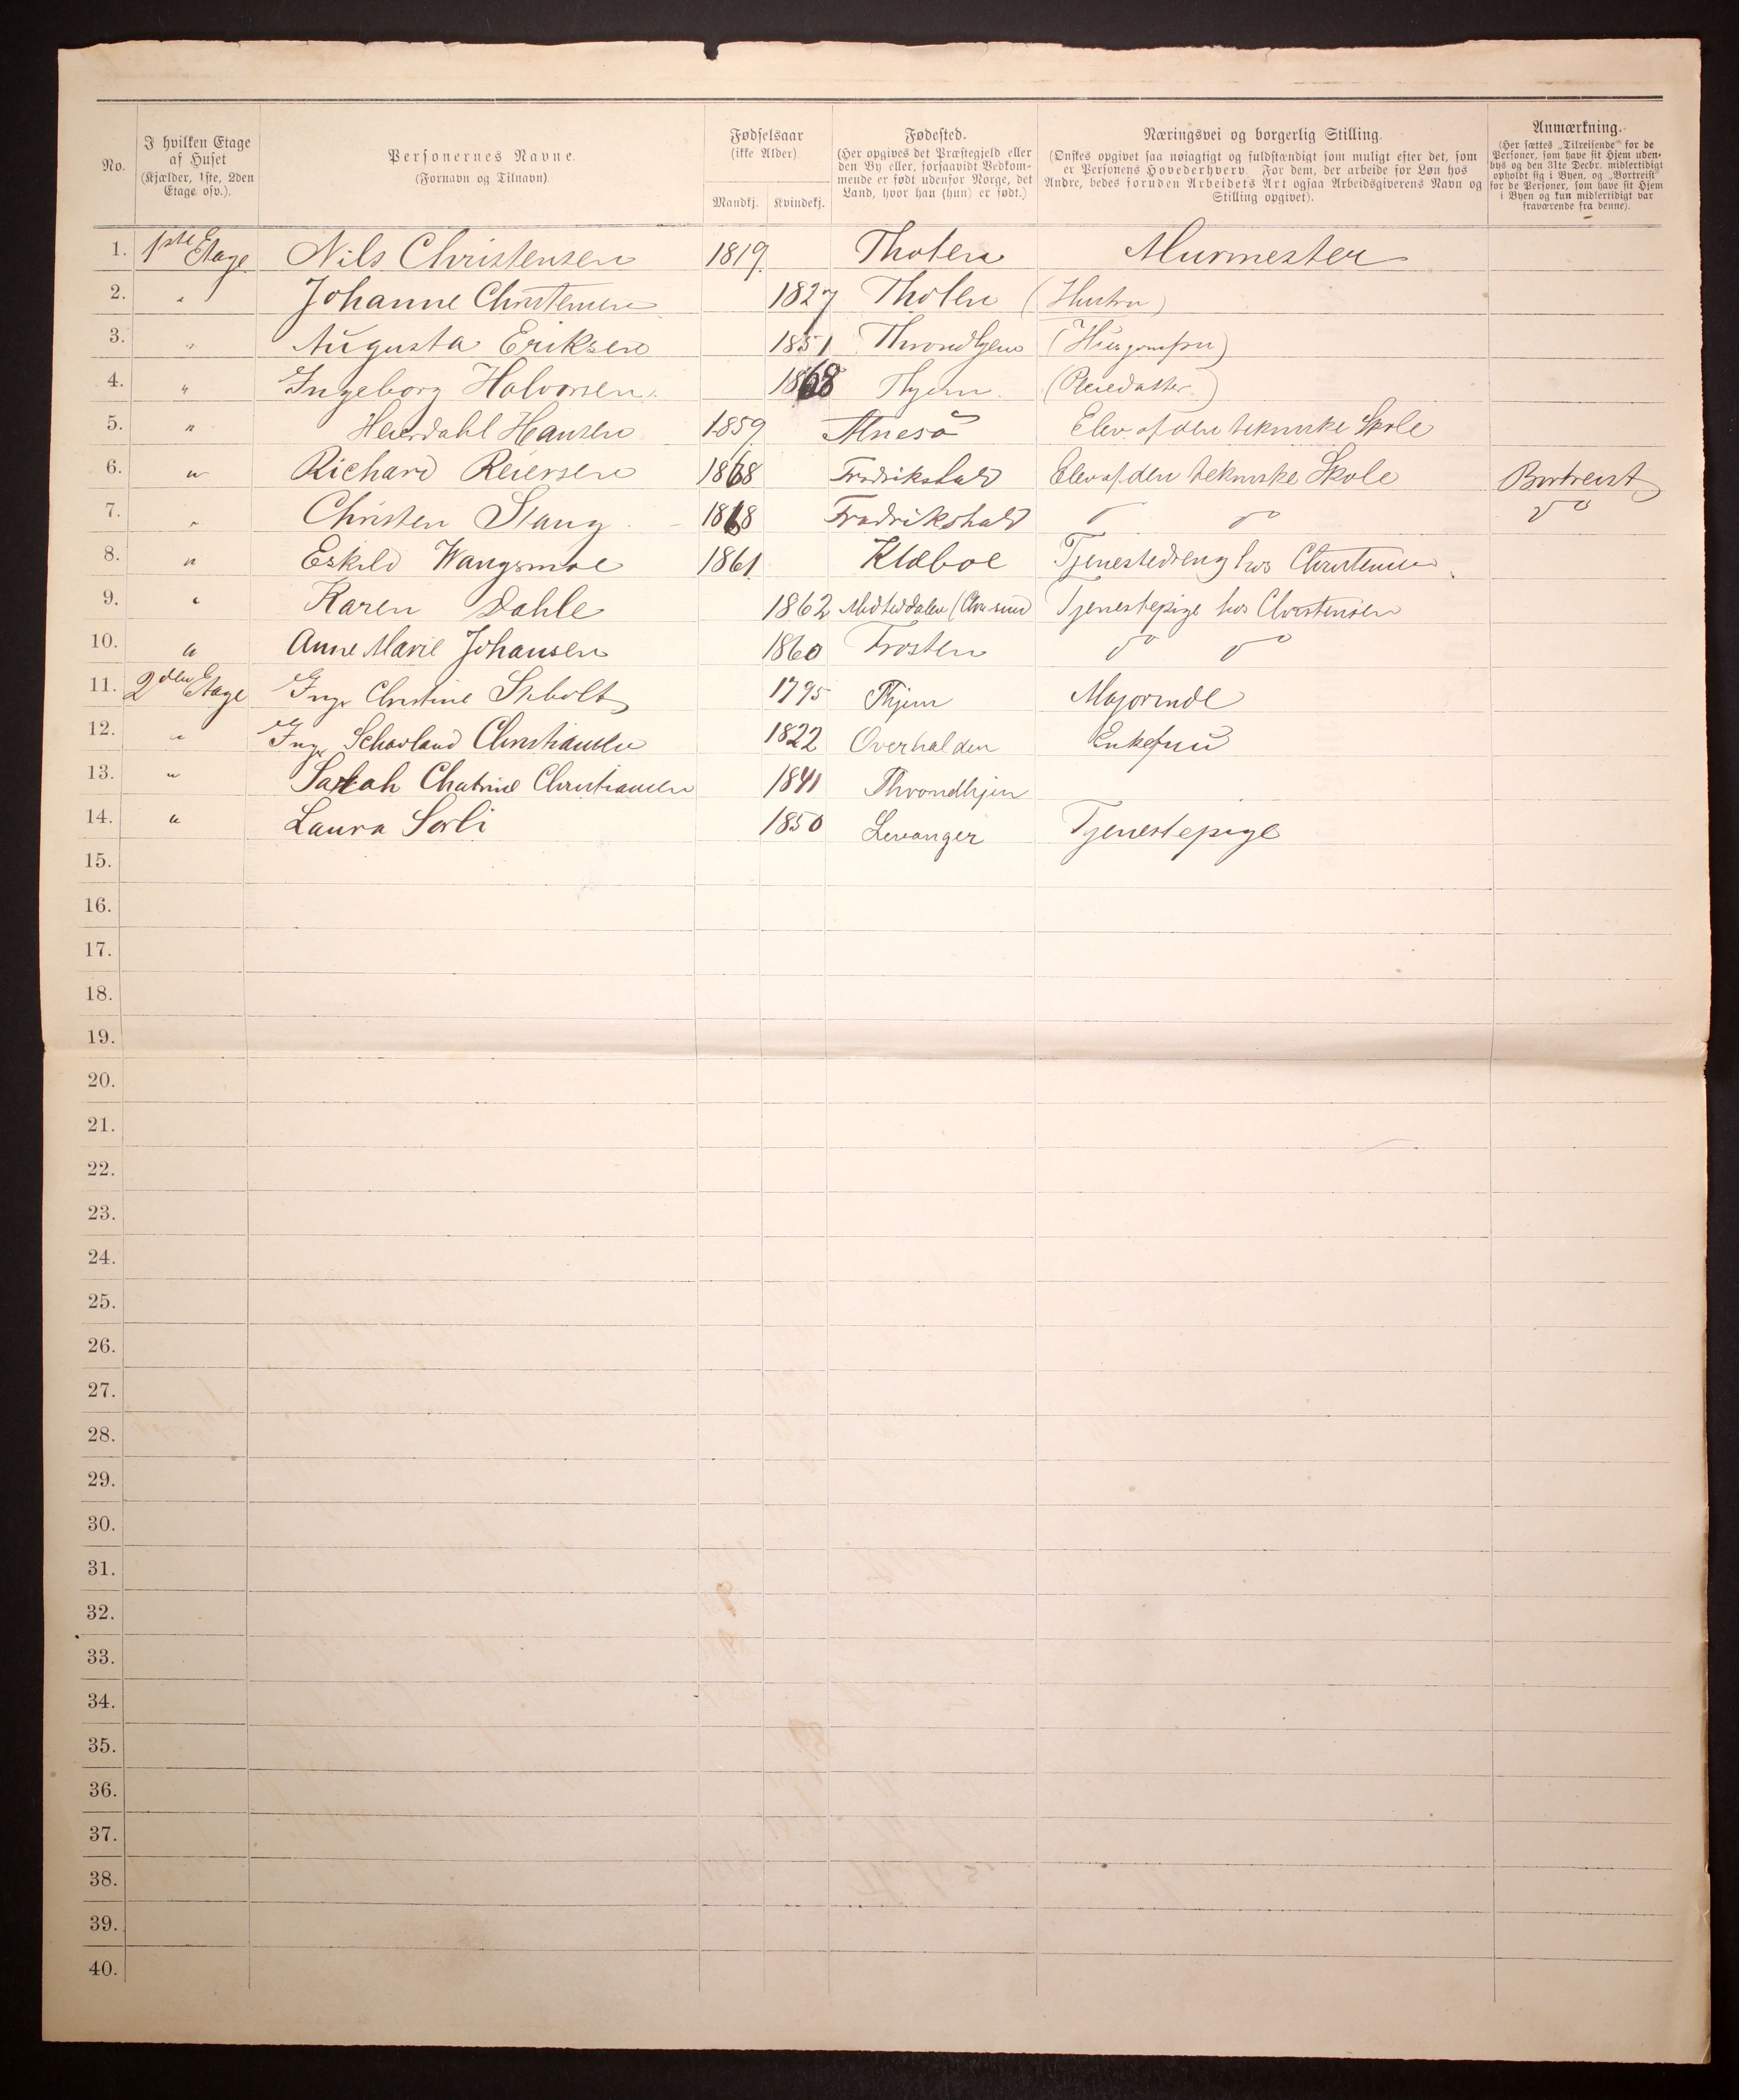 No.
I hvilken Etage af Huset (Kjælder, 1ste, 2den Etage osv.).
Personernes Navne.
(Fornavn og Tilnavn)
Fødselsaar
(ikke Alder)
Mandkj. Kvindekj.
Fødested.
(Her opgives det Præstegjeld eller den By eller, forsaavidt Vedkommende er født udenfor Norge, det Land, hvor han (hun) er født.)
Næringsvei og borgerlig Stilling.
(Ønskes opgivet saa nøiagtigt og fuldstændigt som muligt efter det, som er Personens Hovederhverv. For dem, der arbeide for Løn hos Andre, bedes foruden Arbeidets Art ogsaa Arbeidsgiverens Navn og Stilling opgivet).
Anmærkning.
(Her sættes „Tilreisende" for de Personer, som have sit Hjem udenbys og den 31te Decbr. midlertidigt opholdt sig i Byen, og „Bortreist" for de Personer, som have sit Hjem i Byen og kun midlertidigt var fraværende fra denne).
1. 1ste Etage Nils Christensen 1819 Thoten Murmester
2. " Johanne Christensen 1827 Thoten (Hustru)
3. " Augusta Eriksen 1851 Throndhjem (Husjomfru)
4. " Ingeborg Halvorsen 1868 Thjem. (Pleiedatter)
5. " Hansen 1859 Elev af den tekniske Skole
6. " Richard Reiersen 1868 Fredrikshald Elev af den tekniske Skole Bortreist
7. " Christen Stang 1868 Fredrikshald do do do
8. " Eskild Wangsmoe 1861 Klæboe Tjenestedreng hos Christensen
9. " Karen Dahle 1862 Tjenestepige hos Christensen
10. " Anne Marie Johansen 1860 Frosten do do
11. 2den Etage Inger Christine 1795 Thjem Majorinde
12. " Inger Christiansen 1822 Overhalden Enkefru
13. " Sarah Chatrine Christiansen 1841 Throndhjem
14. " Laura Sorli 1850 Levanger Tjenestepige
15.
16.
17.
18.
19.
20.
21.
22.
23.
24.
25.
26.
27.
28.
29.
30.
31.
32.
33.
34.
35.
36.
37.
38.
39.
40.